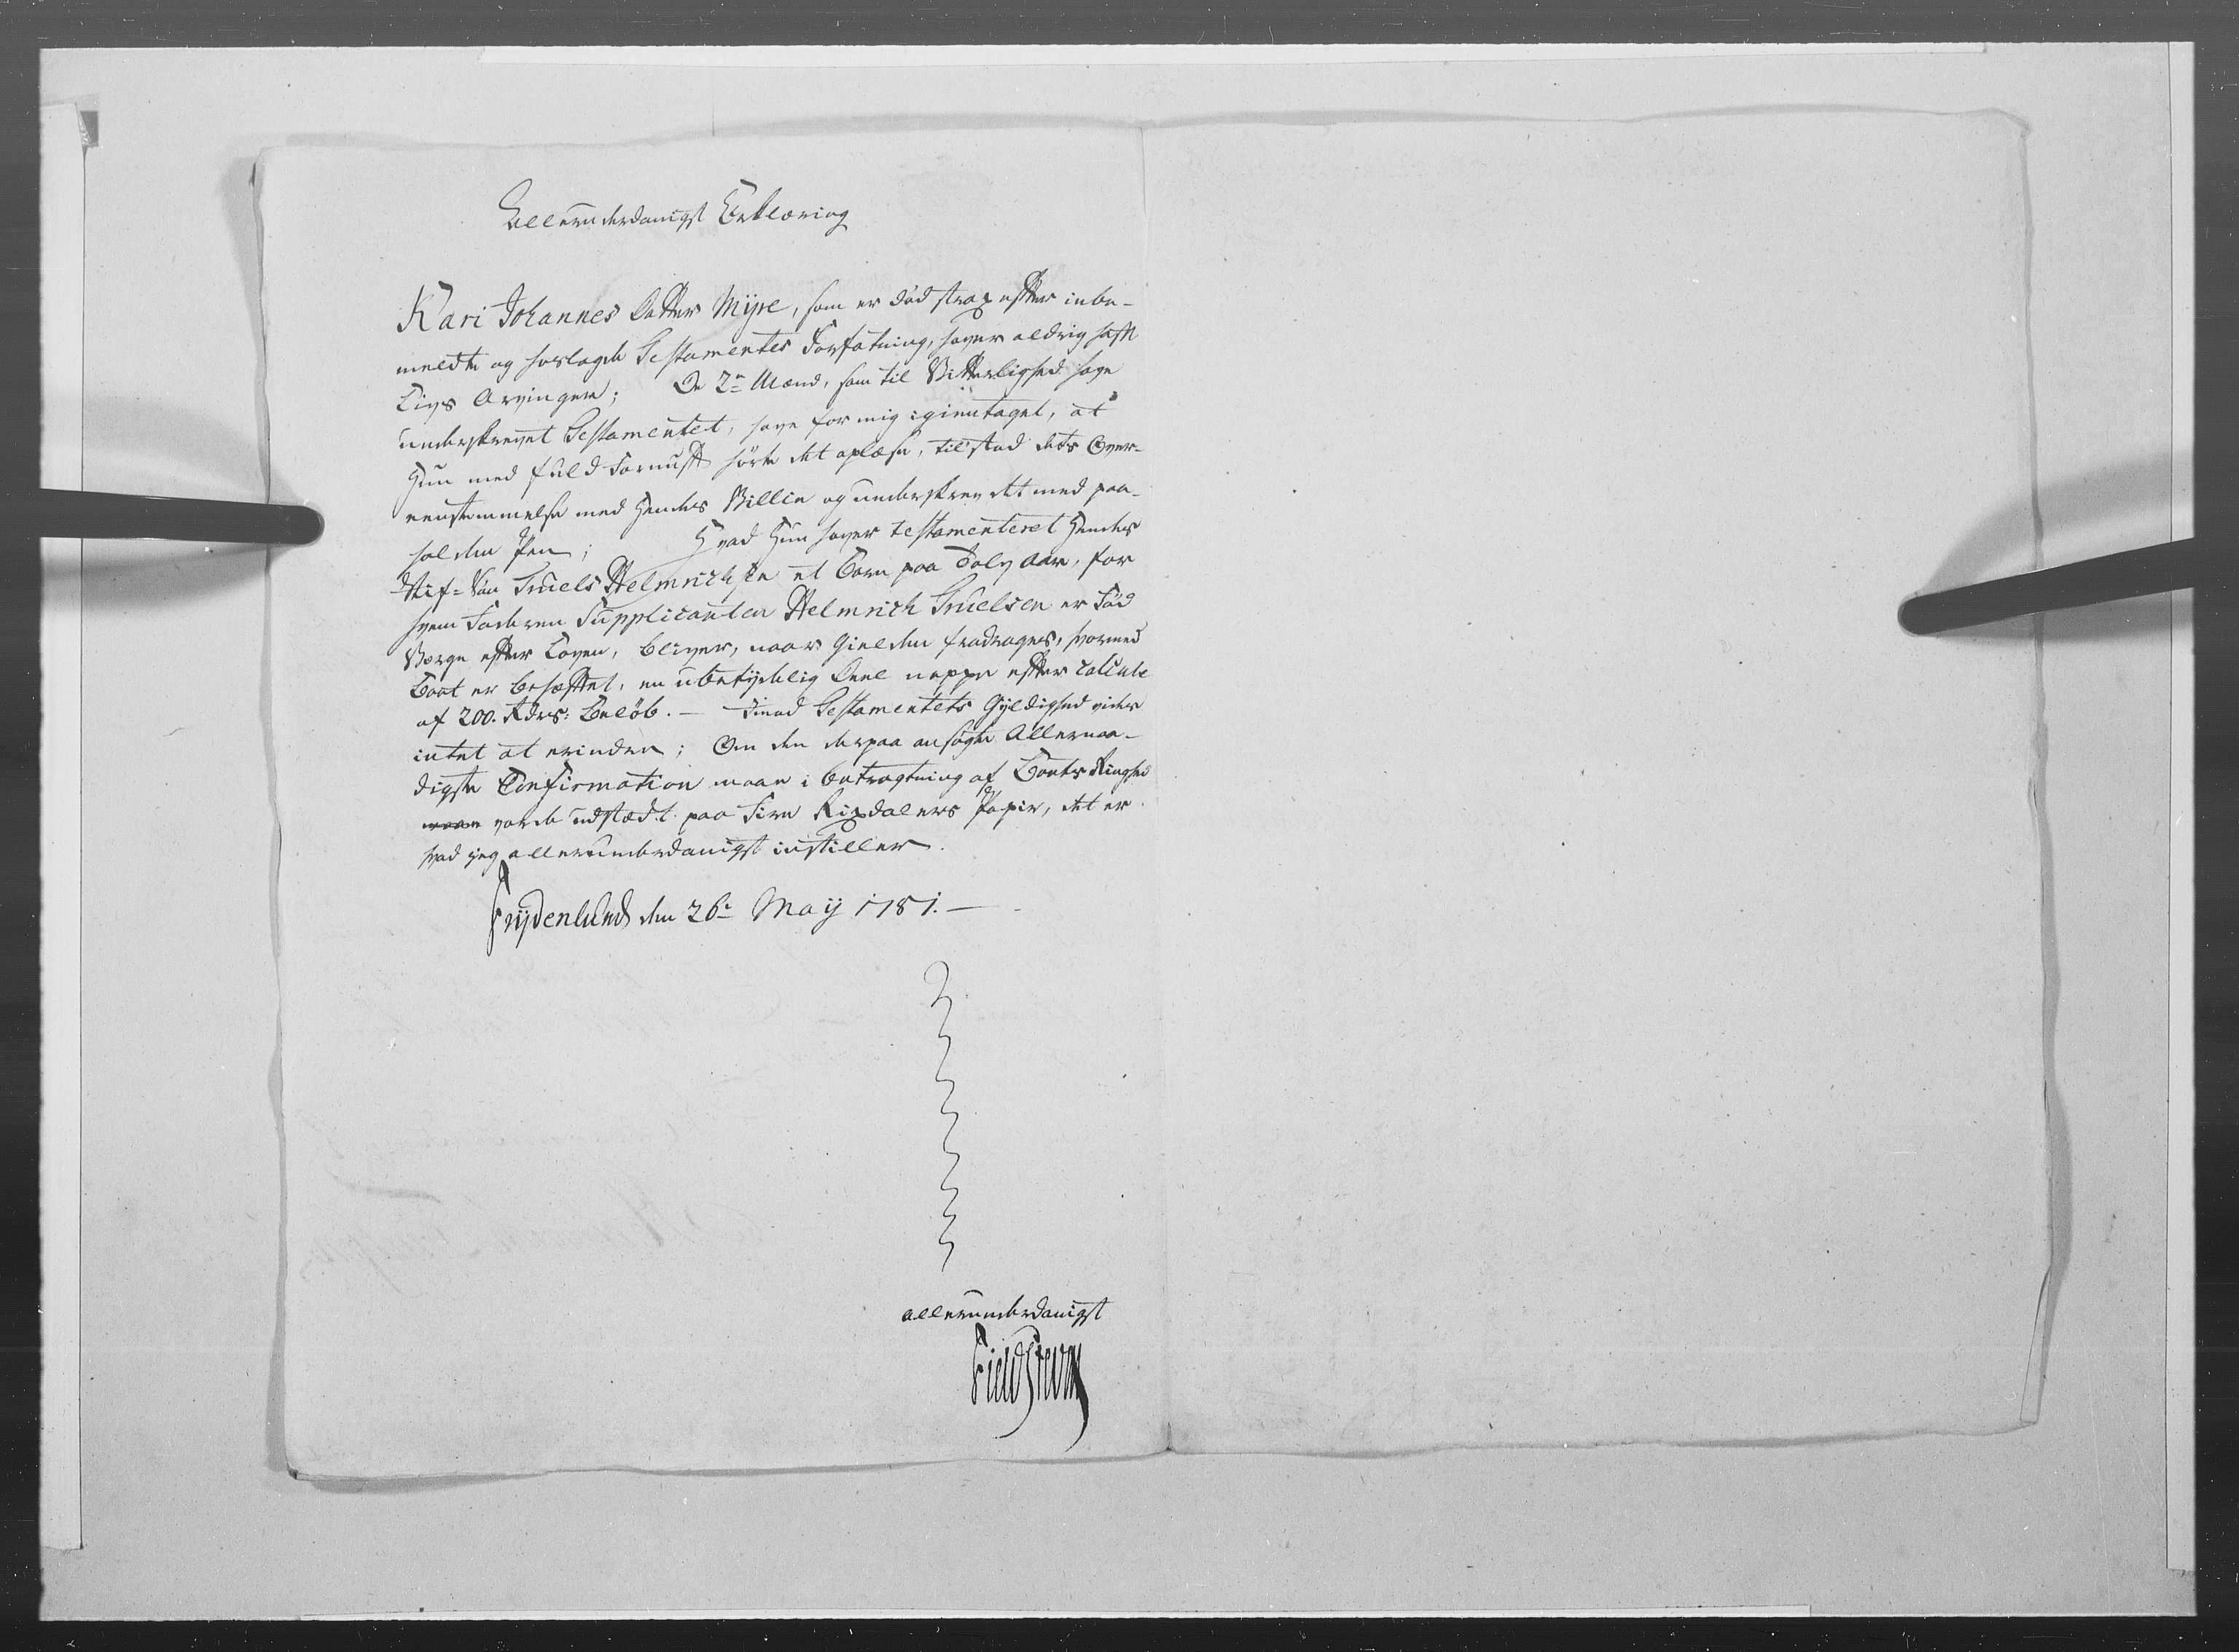 Allerunderdanigst Erklæring
Kari Johannes Datter Myre, som er død strax efter inbe-
meldte og hoslagde Testamentes Forfatning, haver aldrig haft
Livs Arvinger; De 2de Mænd, som til Vitterlighed have
underskrevet Testamentet, have for mig igientaget, at
Hun med fuld Fornuft hørte det oplæse, tilstod dets Over-
eensstemmelse med Hendes Villie og underskrev det med paa-
holden Pen; Hvad Hun haver testamenteret Hendes
Stif-Søn Truels Helmrichsen et Barn paa Tolv Aar, for
hvem Faderen Supplicanten Helmrich Truelsen er Fød
Værge efter Loven, bliver, naar Gielden fradrages, hvormed
Boet er behæftet, en ubetydelig Deel neppe efter Calcule
af 200. Rdrs: Beløb. — Imod Testamentets Gyldighed vides
intet at erindre; Om den derpaa ansøgte Allernaa-
digste Confirmation maae i betragtning af Boets Ringhed
maae vorde udstædt paa Fire Rixdalers Papir, det er
hvad jeg allerunderdanigst instiller.
Frydenlund den 26de May 1781. —
allerunderdanigst
Fieldsted